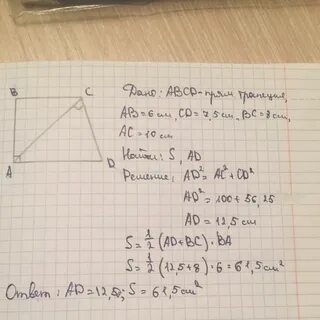 B
C
A
D
Дано: ABCD-прям трапеция,
AB=6 см, CD=7,5 см, BC=8 см,
AC=10 см
Найти: S, AD
Решение: AD²=AC²+CD²
AD²=100+56,25
AD=12,5 см
S=½(AD+BC)·BA
S=½(12,5+8)·6=61,5 см²
Ответ: AD=12,5; S=61,5 см²